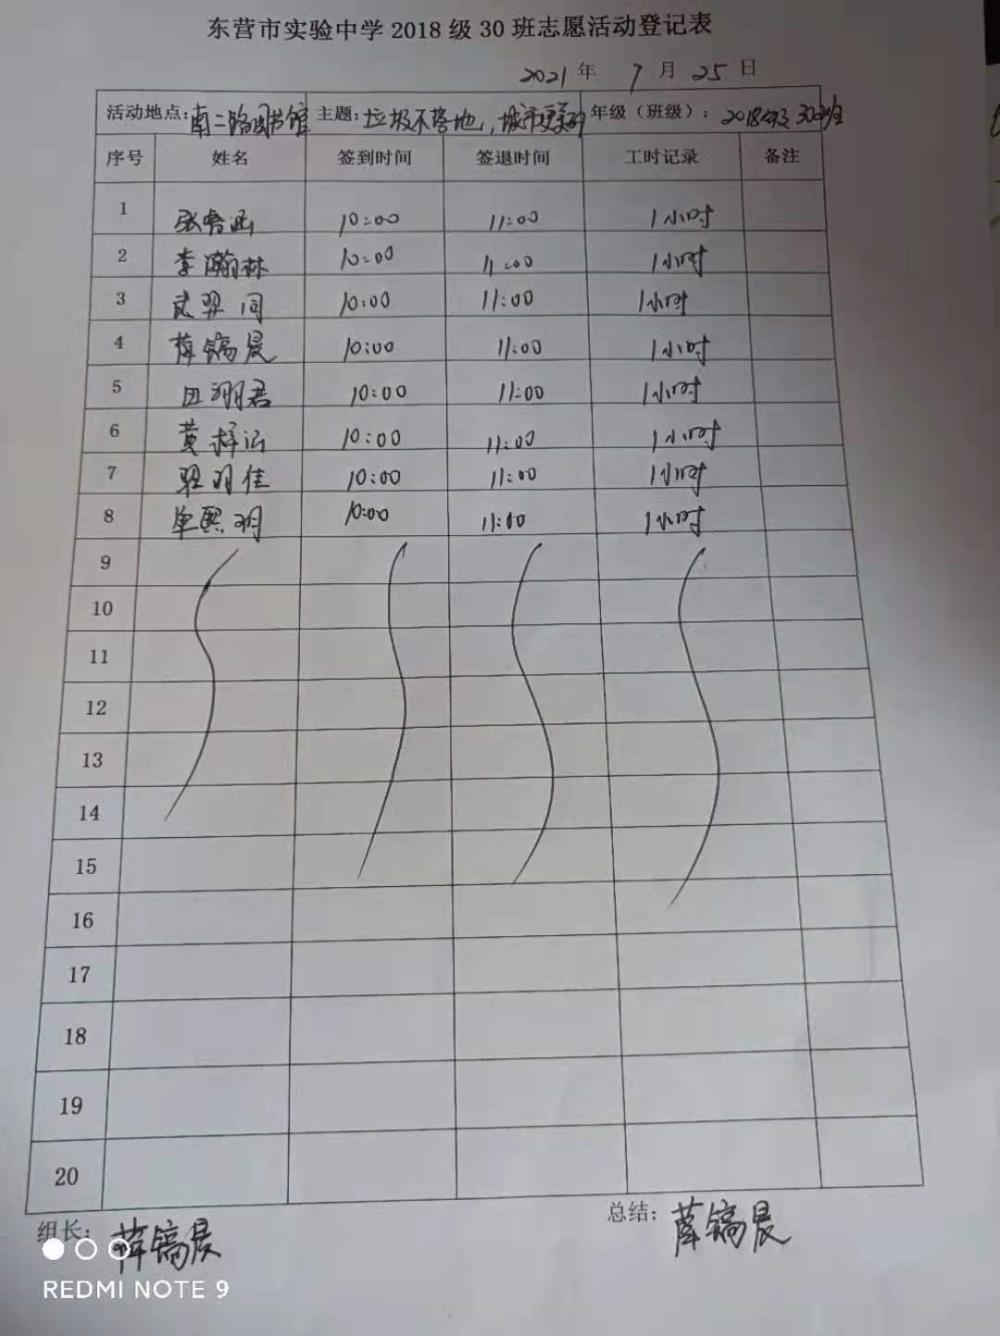 东营市实验中学2018级30班志愿活动登记表
2021年 7月25日
活动地点:南二路图书馆 主题:垃圾不落地,城市更美丽 年级(班级):2018级30班
序号 姓名 签到时间 签退时间 工时记录 备注
1 张睿涵 10:00 11:00 1小时
2 李瀚林 10:00 11:00 1小时
3 武翌同 10:00 11:00 1小时
4 薛镐晨 10:00 11:00 1小时
5 田翊君 10:00 11:00 1小时
6 黄梓涵 10:00 11:00 1小时
7 羽佳 10:00 11:00 1小时
8 单熙玥 10:00 11:00 1小时
9
10
11
12
13
14
15
16
17
18
19
20
组长:薛镐晨 总结:薛镐晨
REDMI NOTE 9